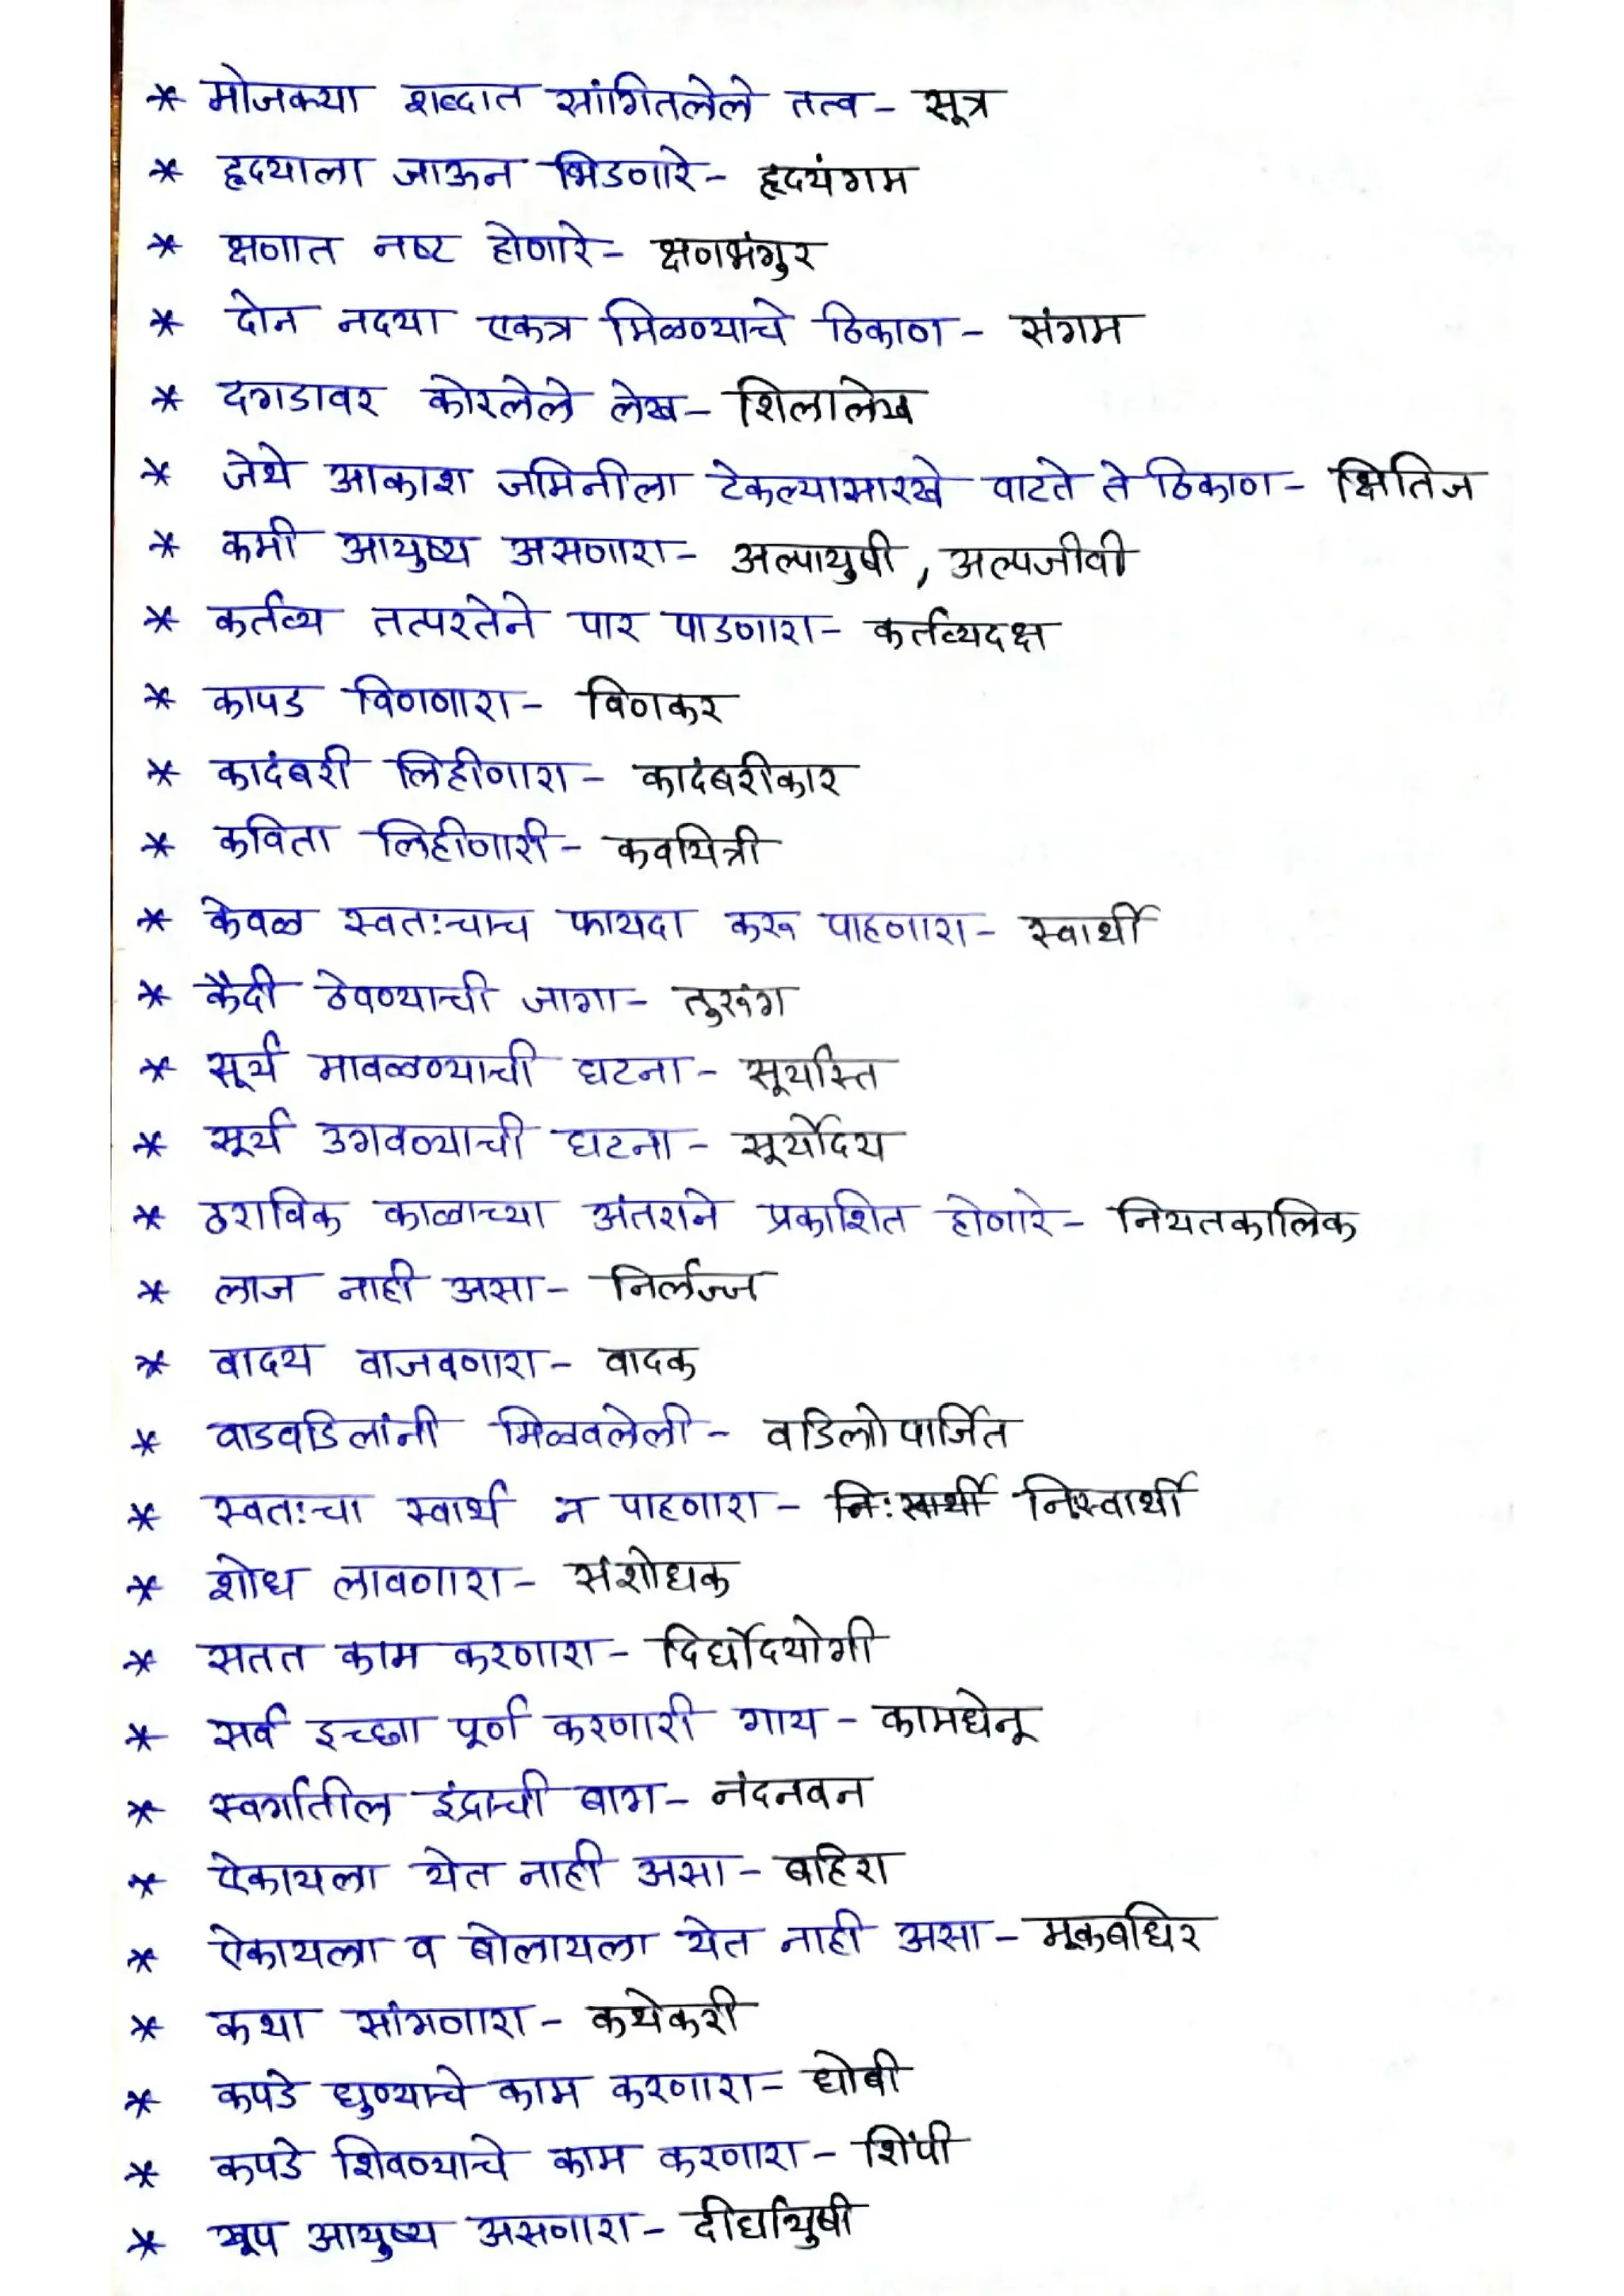 * मोजक्या शब्दात सांगितलेले तत्व - सूत्र
* हृदयाला जाऊन भिडणारे - हृदयंगम
* क्षणात नष्ट होणारे - क्षणभंगुर
* दोन नदया एकत्र मिळण्याचे ठिकाण - संगम
* दगडावर कोरलेले लेख - शिलालेख
* जेथे आकाश जमिनीला टेकल्यासारखे वाटते ते ठिकाण - क्षितिज
* कमी आयुष्य असणारा - अल्पायुषी , अल्पजीवी
* कर्तव्य तत्परतेने पार पाडणारा - कर्तव्यदक्ष
* कापड विणणारा - विणकर
* कादंबरी लिहीणारा - कादंबरीकार
* कविता लिहीणारी - कवयित्री
* केवळ स्वतःचाच फायदा करू पाहणारा - स्वार्थी
* कैदी ठेवण्याची जागा - तुरूंग
* सूर्य मावळण्याची घटना - सूर्यास्त
* सूर्य उगवण्याची घटना - सूर्योदय
* ठराविक काळाच्या अंतराने प्रकाशित होणारे - नियतकालिक
* लाज नाही असा - निर्लज्ज
* वादय वाजवणारा - वादक
* वाडवडिलांनी मिळवलेली - वडिलोपार्जित
* स्वतःचा स्वार्थ न पाहणारा - निःस्वार्थी निस्वार्थी
* शोध लावणारा - संशोधक
* सतत काम करणारा - दिर्घोदयोगी
* सर्व इच्छा पूर्ण करणारी गाय - कामधेनू
* स्वर्गातील इंद्राची बाग - नंदनवन
* ऐकायला येत नाही असा - बहिरा
* ऐकायला व बोलायला येत नाही असा - मूकबधिर
* कथा सांगणारा - कथेकरी
* कपडे धुण्याचे काम करणारा - धोबी
* कपडे शिवण्याचे काम करणारा - शिंपी
* खूप आयुष्य असणारा - दीर्घायुषी